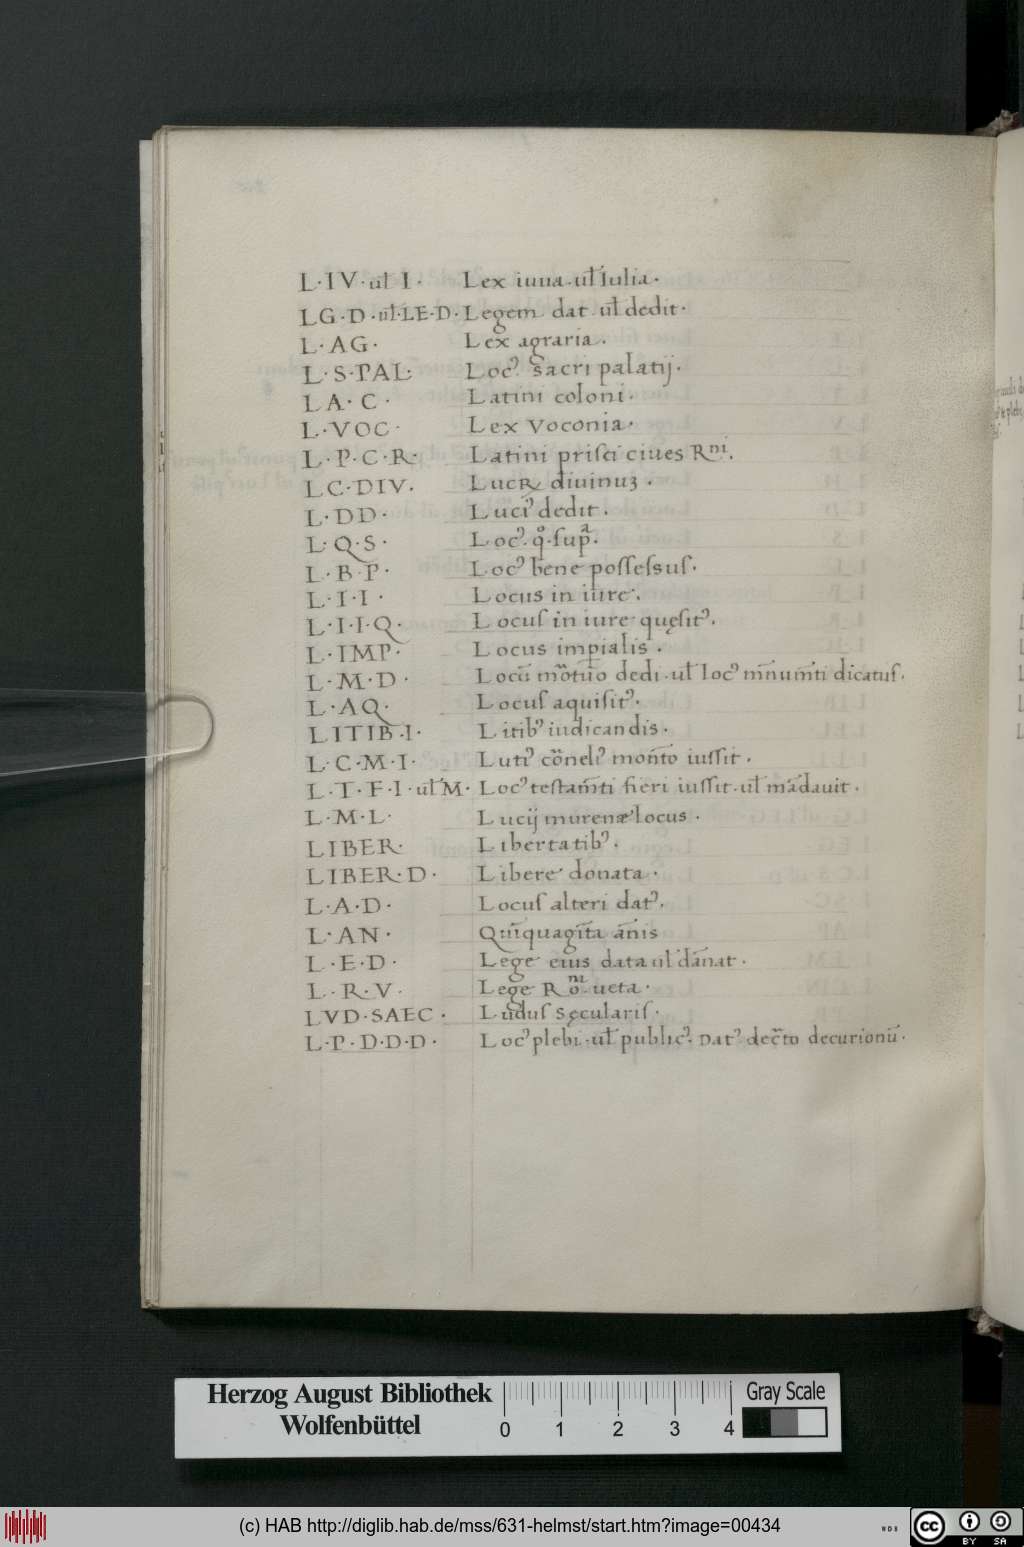 L·IV·ul̄ I· Lex iuua·ul̄ Iulia·
LG·D·ul̄·LE·D· Legem dat ul̄ dedit·
L·AG· Lex agraria·
L·S·PAL· Locꝰ sacri palatij·
LA·C· Latini coloni·
L·VOC· Lex Voconia·
L·P·C·R· Latini prisci ciues Rni.
LC·DIV. Lucꝝ diuinuꝫ·
L·DD· Luciꝰ dedit·
L·Q·S· Locꝰ·qͦ·supͣ·
L·B·P· Locꝰ bene possessus·
L·I·I· Locus in iure·
L·I·I·Q· Locus in iure quęsitꝰ.
L·IMP· Locus imꝑialis·
L·M·D· Locū mōtuo dedi·ul̄ locꝰ m̄num̄ti dicatus·
L·AQ· Locus aquisitꝰ·
LITIB·I· Litibꝰ iudicandis·
L·C·M·I· Lutiꝰ cōneliꝰ mon̄to iussit·
L·T·F·I·ul̄ M· Locꝰ testam̄ti fieri iussit·ul̄ mādauit·
L·M·L· Lucij murenæ locus·
LIBER· Libertatibꝰ·
LIBER·D· Libere donata·
L·A·D· Locus alteri datꝰ.
L·AN· Quīquagīta ānis
L·E·D· Lege eius data ul̄ dānat·
L·R·V· Lege Ro. ueta·
LVD·SAEC· Ludus sęcularis·
L·P·D·D·D· Locꝰ plebi·ul̄ publicꝰ· datꝰ decr̄to decurionū·
Herzog August Bibliothek
Wolfenbüttel
0 1 2 3 4
Gray Scale
(c) HAB http://diglib.hab.de/mss/631-helmst/start.htm?image=00434
WDB
cc BY SA